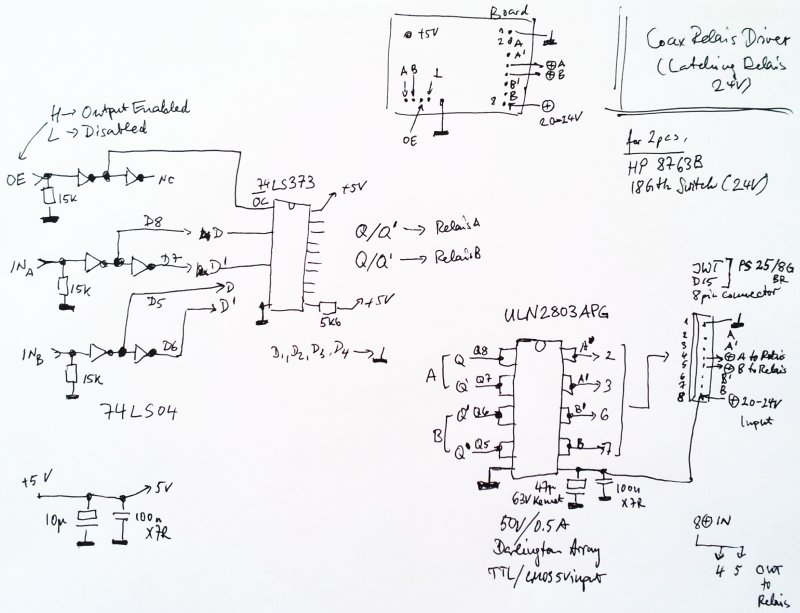 Board
+5V
1
2 A
A'
A B ⊥
⊕ A
⊕ B
B'
B
8
⊕
20-24V
OE
Coax Relais Driver
(Latching Relais
24V)
for 2pcs,
HP 8763B
18GHz Switch (24V)
H → Output Enabled
L → Disabled
OE
NC
15K
74LS373
OC
+5V
D8
D
D7
D'
IN A
15K
D5
D
D'
D6
IN B
15K
74LS04
Q/Q' → Relais A
Q/Q' → Relais B
+5V
5K6
D1, D2, D3, D4 →
ULN2803APG
A
Q Q8
Q' Q7
B
Q' Q6
Q Q5
A
2
A'
3
B'
6
B
7
47µ
63V Kemet
100n
X7R
50V/0.5A
Darlington Array
TTL/CMOS 5V input
JWT
D15
PS 25/8G
BR
8 pin connector
1
2 A
3 A'
4 ⊕ A to Relais
5 ⊕ B to Relais
6 B'
7 B
8 ⊕ 20-24V
Input
8 ⊕ IN
4 5 OUT
to
Relais
+5V
5V
10µ
100n
X7R